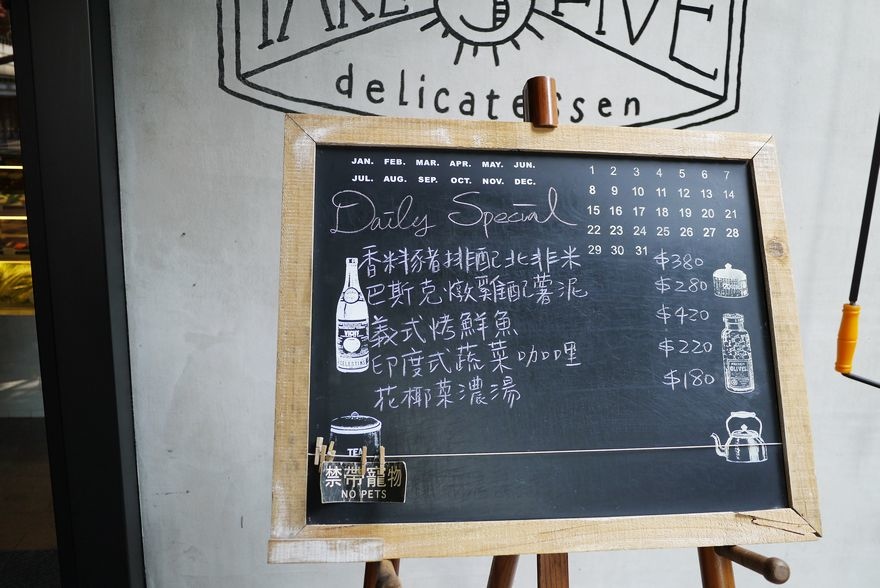 TAKE FIVE
delicatessen
JAN. FEB. MAR. APR. MAY. JUN.
JUL. AUG. SEP. OCT. NOV. DEC.
1 2 3 4 5 6 7
8 9 10 11 12 13 14
15 16 17 18 19 20 21
22 23 24 25 26 27 28
29 30 31
Daily Special
香料豬排配北非米 $380
巴斯克燉雞配薯泥 $280
義式烤鮮魚 $420
印度式蔬菜咖哩 $220
花椰菜濃湯 $180
OLIVES
TEA
禁帶寵物
NO PETS